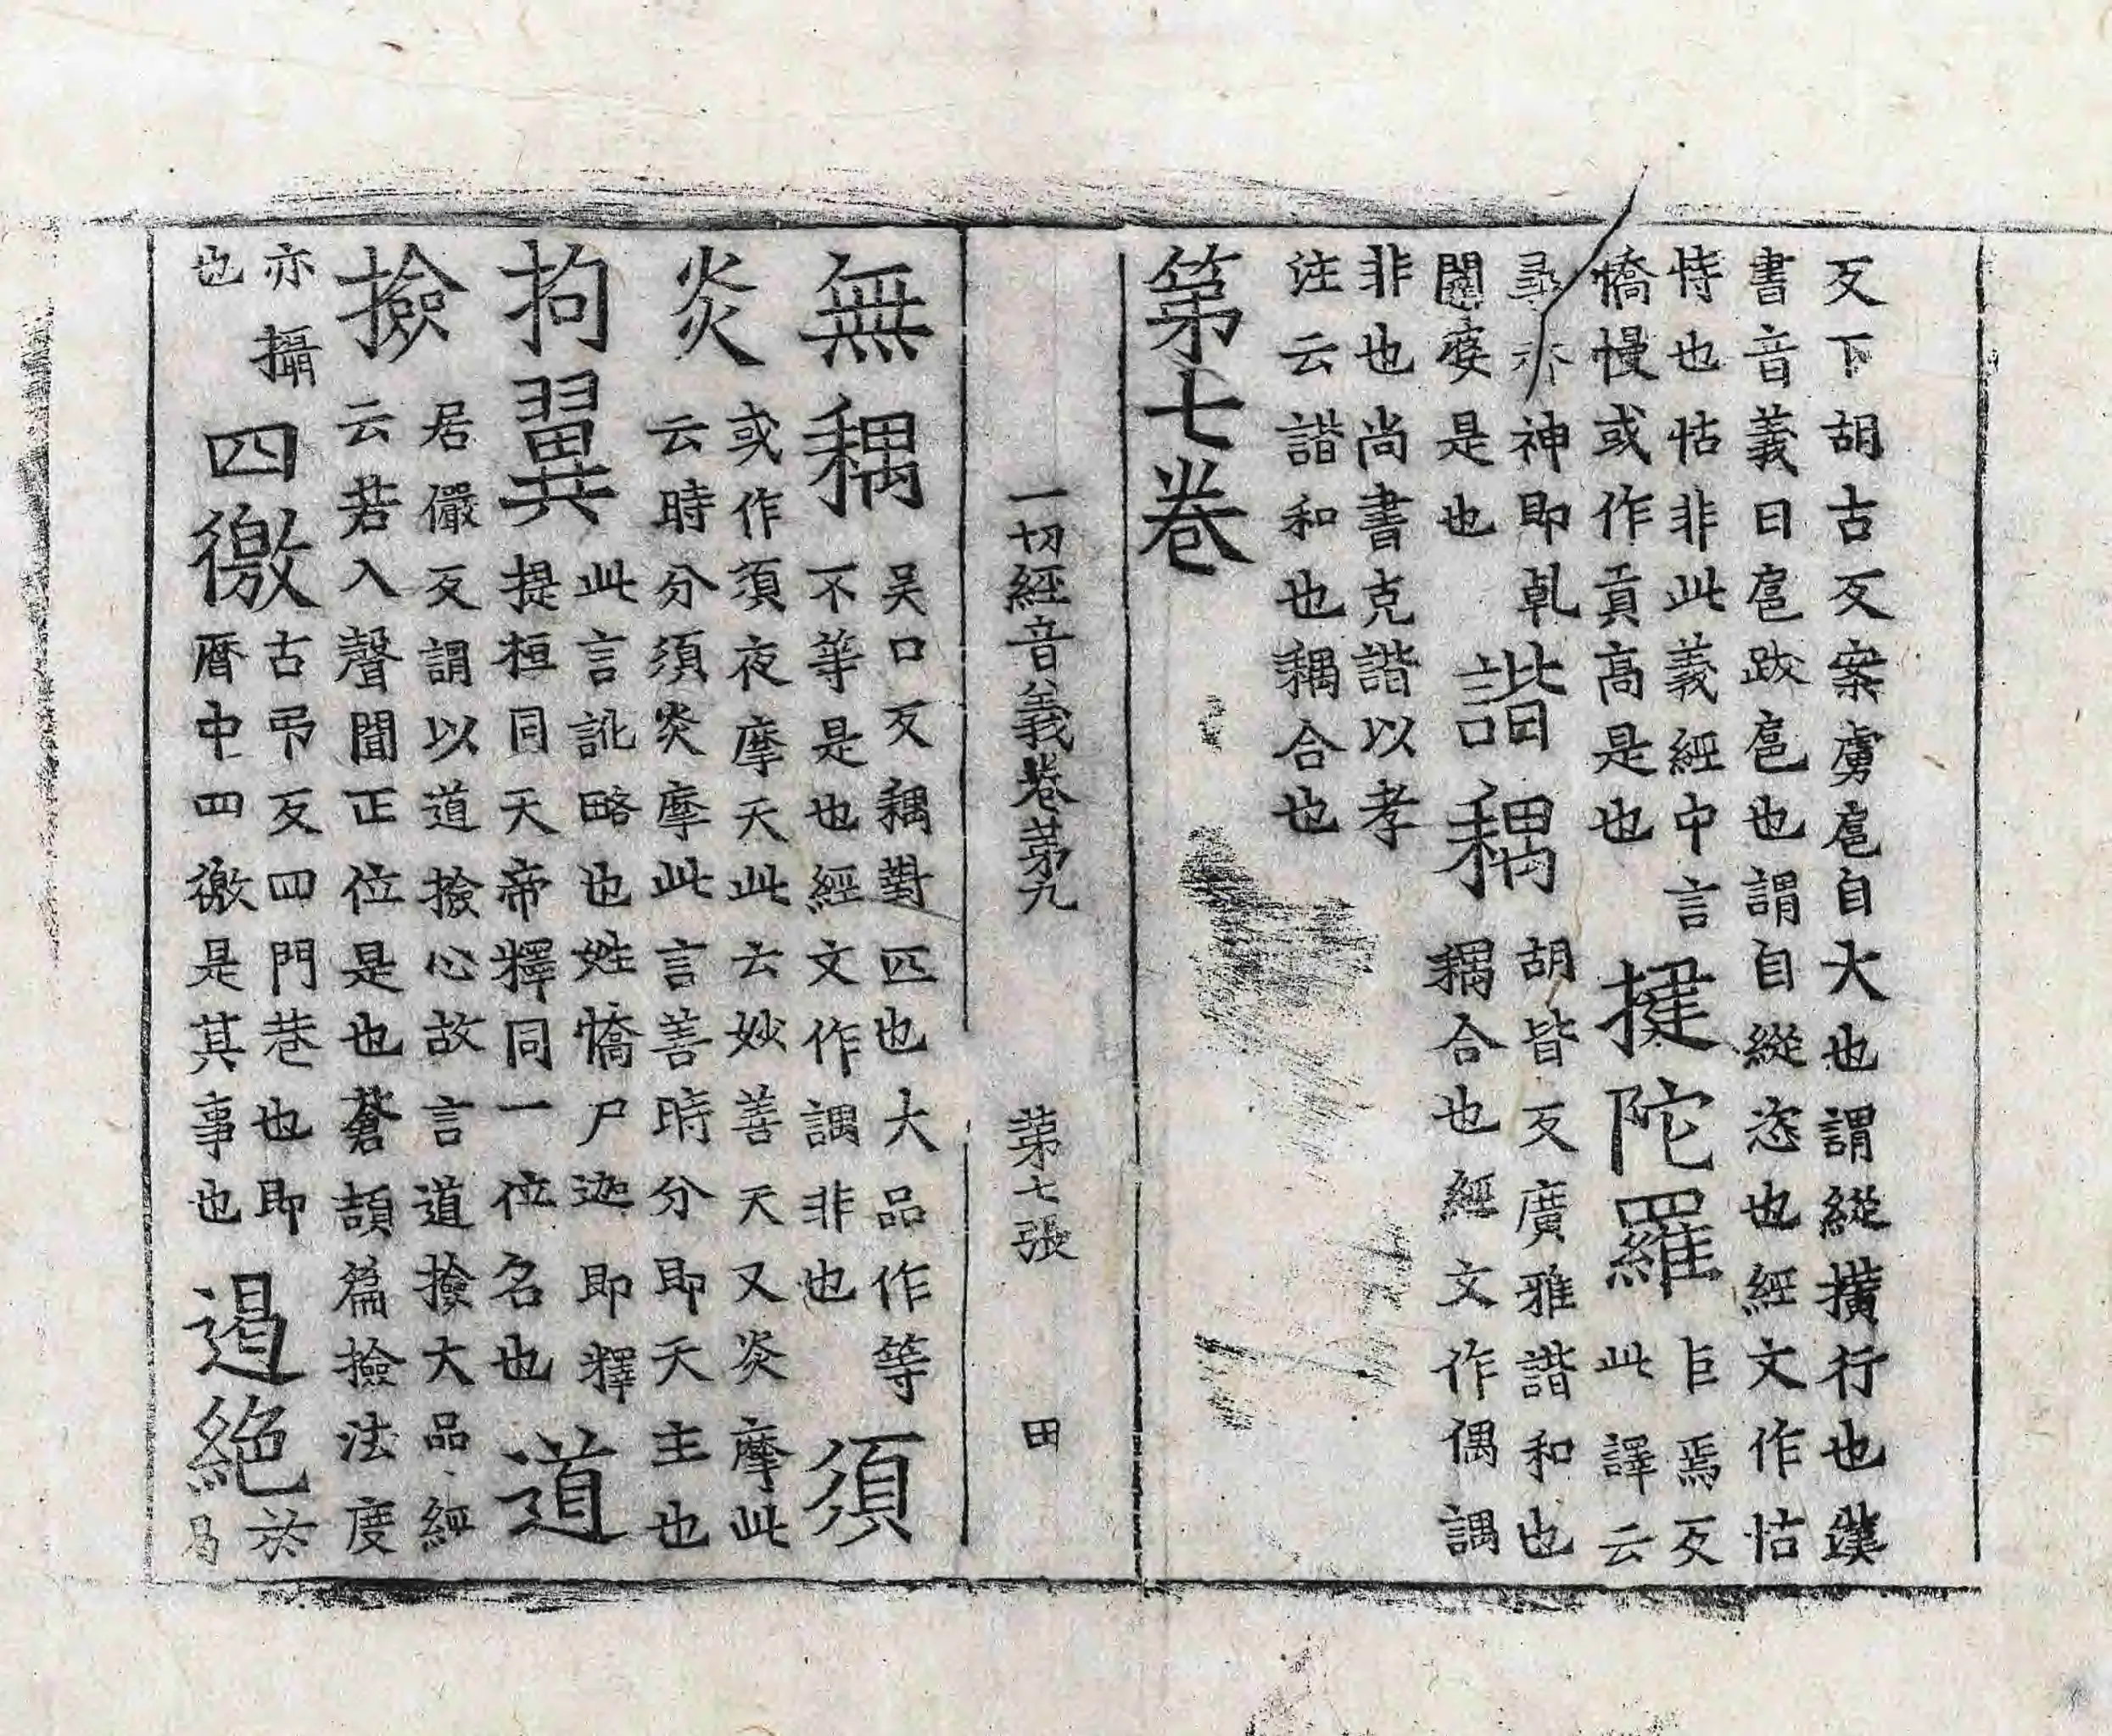 反下胡古反案虜扈自大也謂縱擴行也漢
書音義曰扈跋扈也謂自縱恣也經文作怙
恃也怙非此義經中言
憍慢或作貢高是也
揵陀羅
巨焉反
此譯云
尋亦神即乹
闥婆是也
諧耦
胡皆反廣雅諧和也
耦合也經文作偶
非也尚書克諧以孝
注云諧和也耦合也
第七卷
一切經音義卷第九 第七張 田
無耦
吴口反耦對匹也大品作等
不等是也經文作非也
須
炎
或作須夜摩天此云妙善天又炎摩此
云時分須炎摩此言善時分即天主也
拘翼
此言訛略也姓憍尸迦即釋
提桓同天帝釋同一位名也
道
撿
居儼反謂以道撿心故言道撿大品經
云若入聲聞正位是也蒼頡篇撿法度
亦攝
也
四徼
古弔反四門巷也即
曆中四徼是其事也
遏絕
於
曷